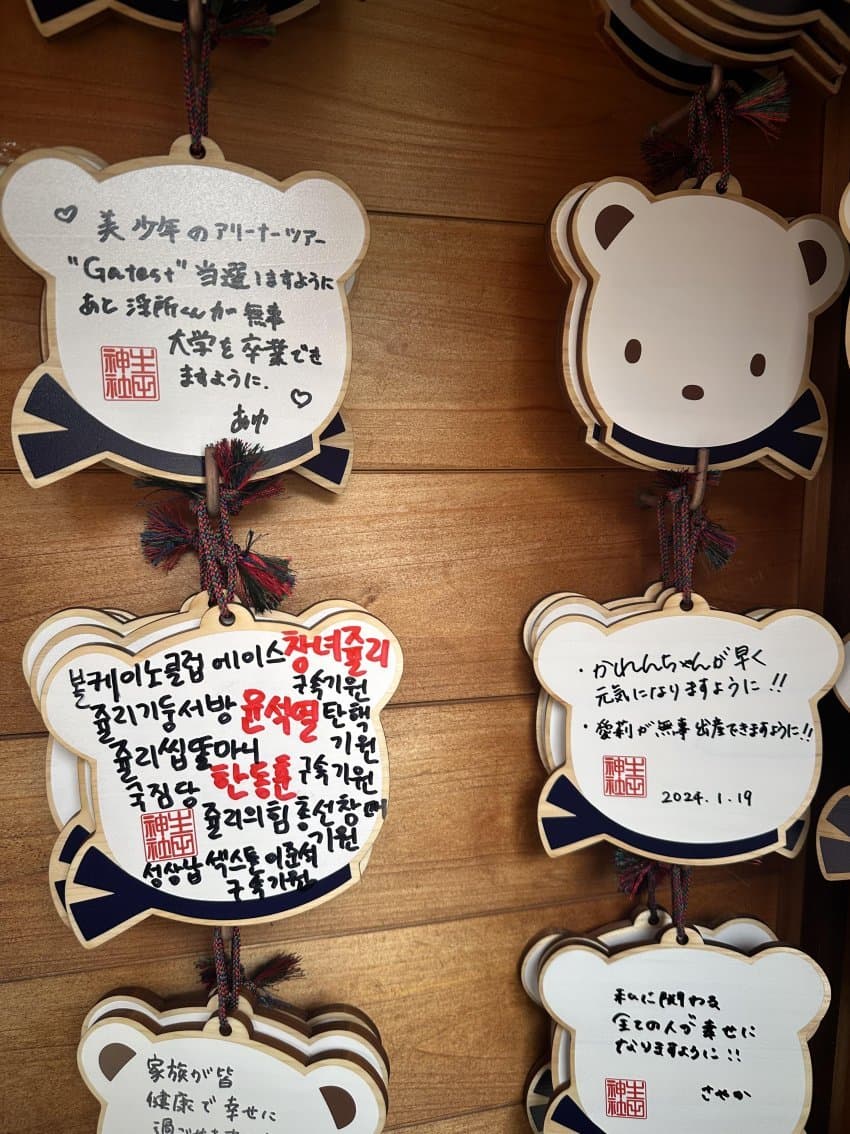 美 少年のアリーナーツアー
"Gatest" 当選しますように
あと 浮所くんが 無事
大学を卒業でき
ますように.
あゆ
神社
볼케이노클럽 에이스 창녀쥴리
구속기원
쥴리기둥서방 윤석열 탄핵
기원
쥴리씹똘마니
한동훈 구속기원
국짐당
쥴리의힘 총선창때
기원
성상납 섹스톤 이준석
구속기원
神社
・かれんちゃんが早く
元気になりますように!!
・愛莉が無事出産できますように!!
神社
2024.1.19
家族が皆
健康で幸せに
私に関わる
全ての人が幸せに
なりますように!!
さやか
神社